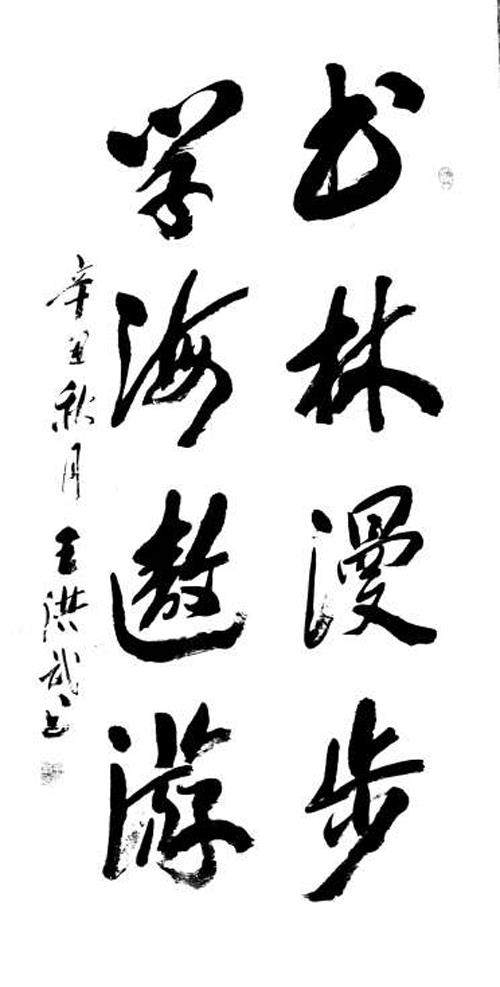 书林漫步
学海遨游
辛丑秋月王洪武书